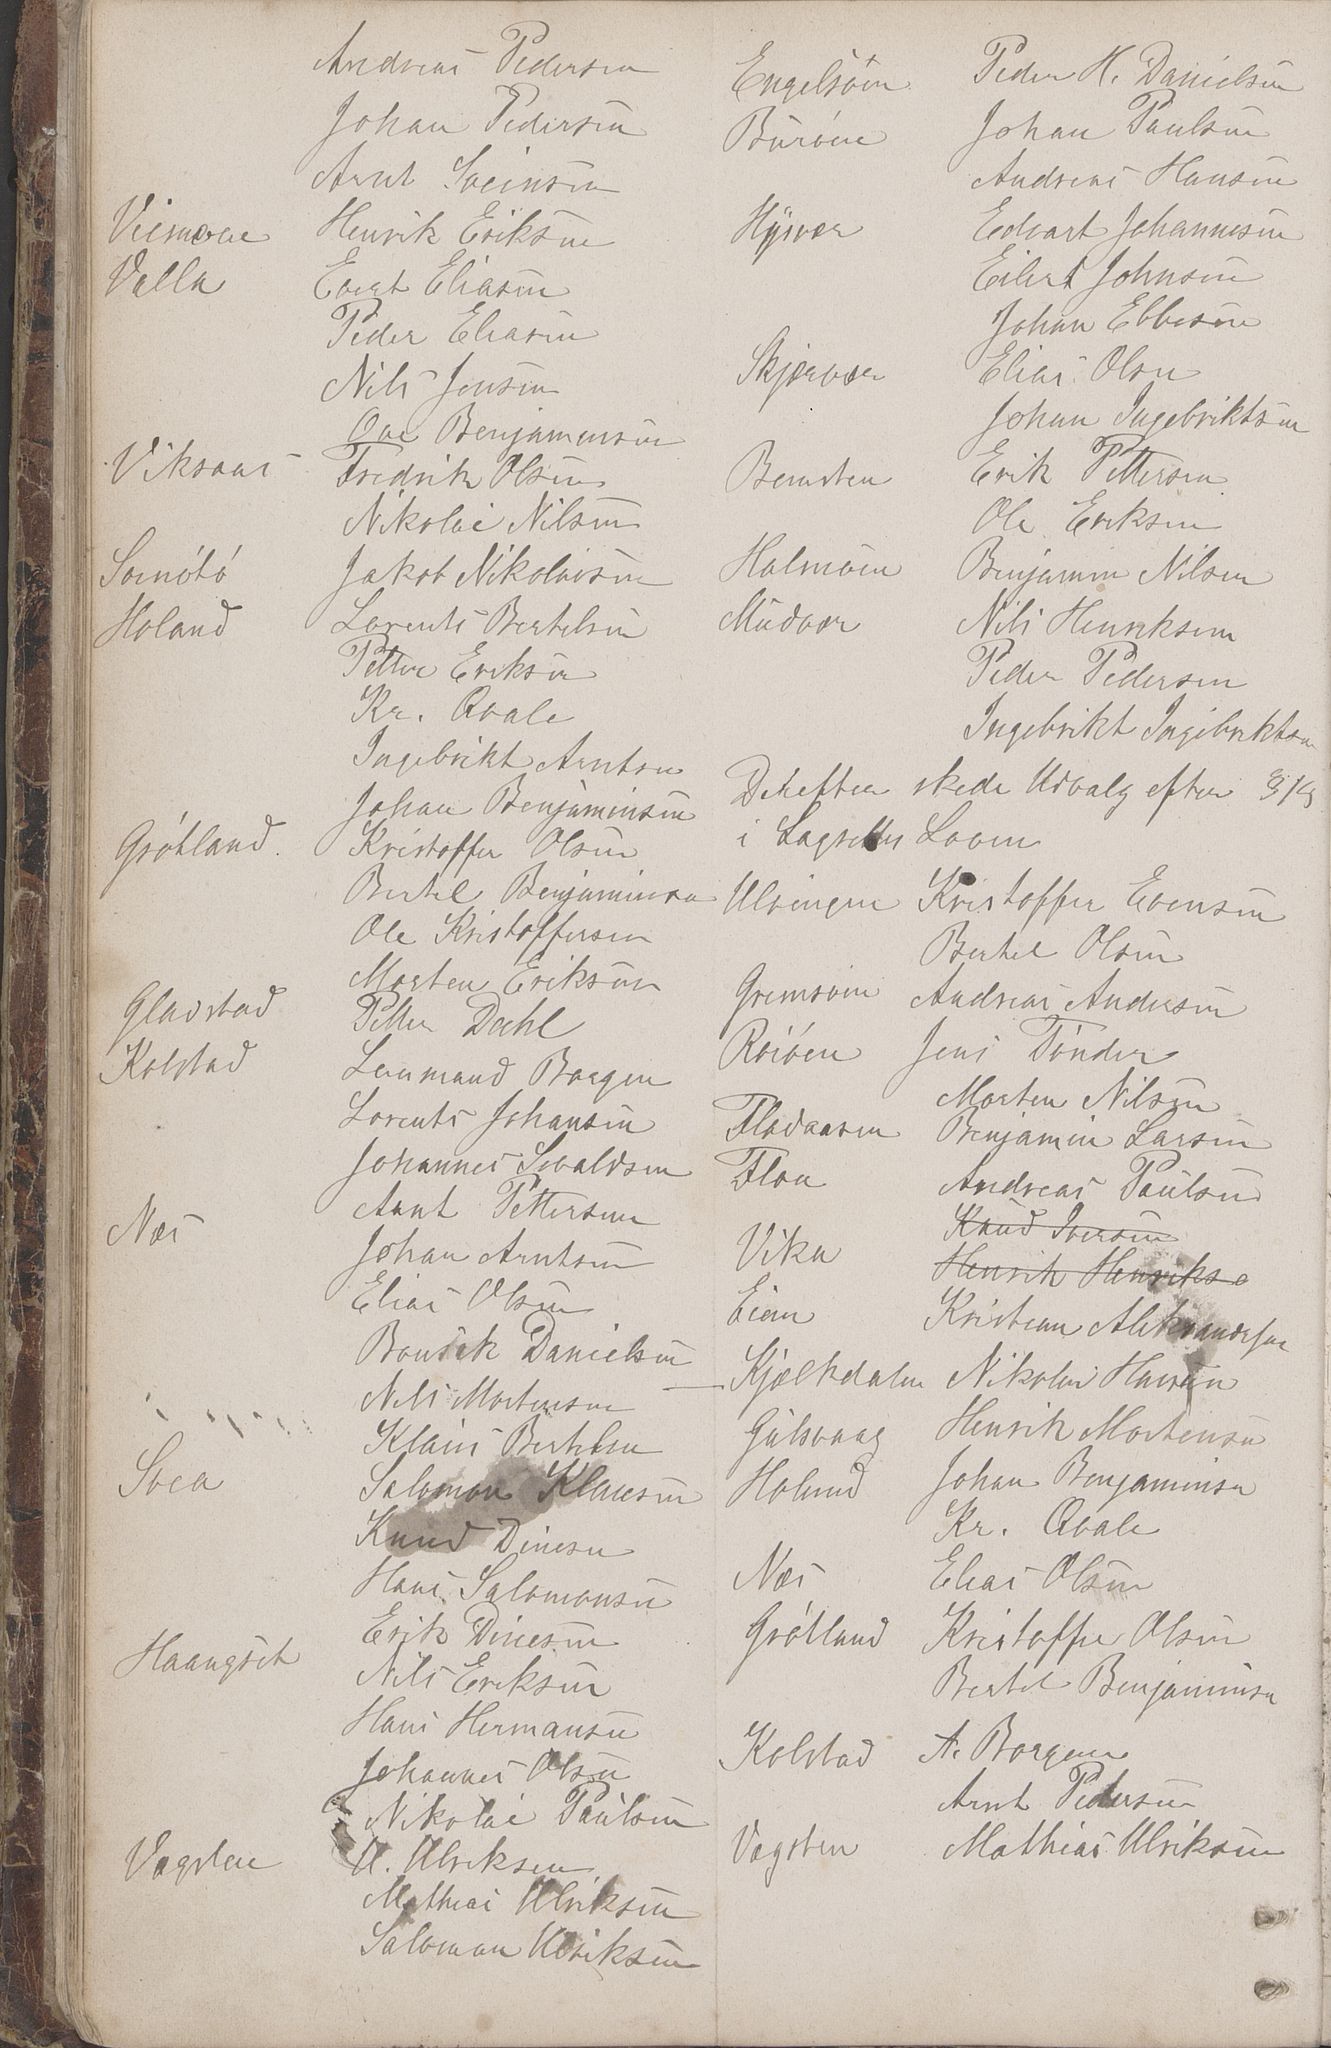 Andreas Pedersen
Johan Pedersen
Arnt Sveinsen
Henrik Eriksen
Valla Evert Eliasen
Peder Eliasen
Nils Jensen
Ove Benjamensen
Viksaas Fredrik Olsen
Nikolai Nilsen
Jakob Nikolaisen
Holand Lorents Bertelsen
Petter Eriksen
Kr. Qvale
Ingebrikt Arntsen
Johan Benjaminsen
Grøtland. Kristoffer Olsen
Bertel Benjaminsen
Ole Kristoffersen
Morten Eriksen
Gladstad Petter Dahl
Kolstad Borgen
Lorents Johansen
Johannes Sivaldsen
Arnt Pettersen
Næs Johan Arntsen
Elias Olsen
Danielsen
Nils Mortensen
Klaus Bertelsen
Svea Salomon Klausen
Knud Dinesen
Hans Salomonsen
Erik Dinesen
Haangset Nils Eriksen
Hans Hermansen
Johannes Olsen
Nikolai Paulsen
Vægsten U. Ulriksen
Mathias Ulriksen
Salomon Ulriksen
Engelsøen Peder H. Danielsen
Burøen Johan Paulsen
Andreas Hansen
Hysvær Edvart Johannesen
Eilert Johnsen
Johan Ebbesen
Skjærvær Elias Olsen
Johan Ingebriktsen
Bemsten Erik Pettersen
Ole Eriksen
Halmøen Benjamin Nilsen
Mudvær Nils Henriksen
Peder Pedersen
Ingebrikt Ingebriktsen
Derefter skede Udvalg efter
i Lagrettes Loven
Ulvingen Kristoffer Evensen
Bertel Olsen
Gremsøen Andreas Andersen
Rosøen Jens Tønder
Morten Nilsen
Flovaasen Benjamin Larsen
Floa Andreas Paulsen
Knud Iversen
Vika Henrik Henrikse
Eian Kristian Aleksandersen
Kjælkdalen Nikolai Hansen
Gulsvaag Henrik Mortensen
Holand Johan Benjaminsen
Kr. Qvale
Næs Elias Olsen
Grøtland Kristoffer Olsen
Bertel Benjaminsen
Kolstad A. Borgen
Arnt Pedersen
Vægsten Mathias Ulriksen